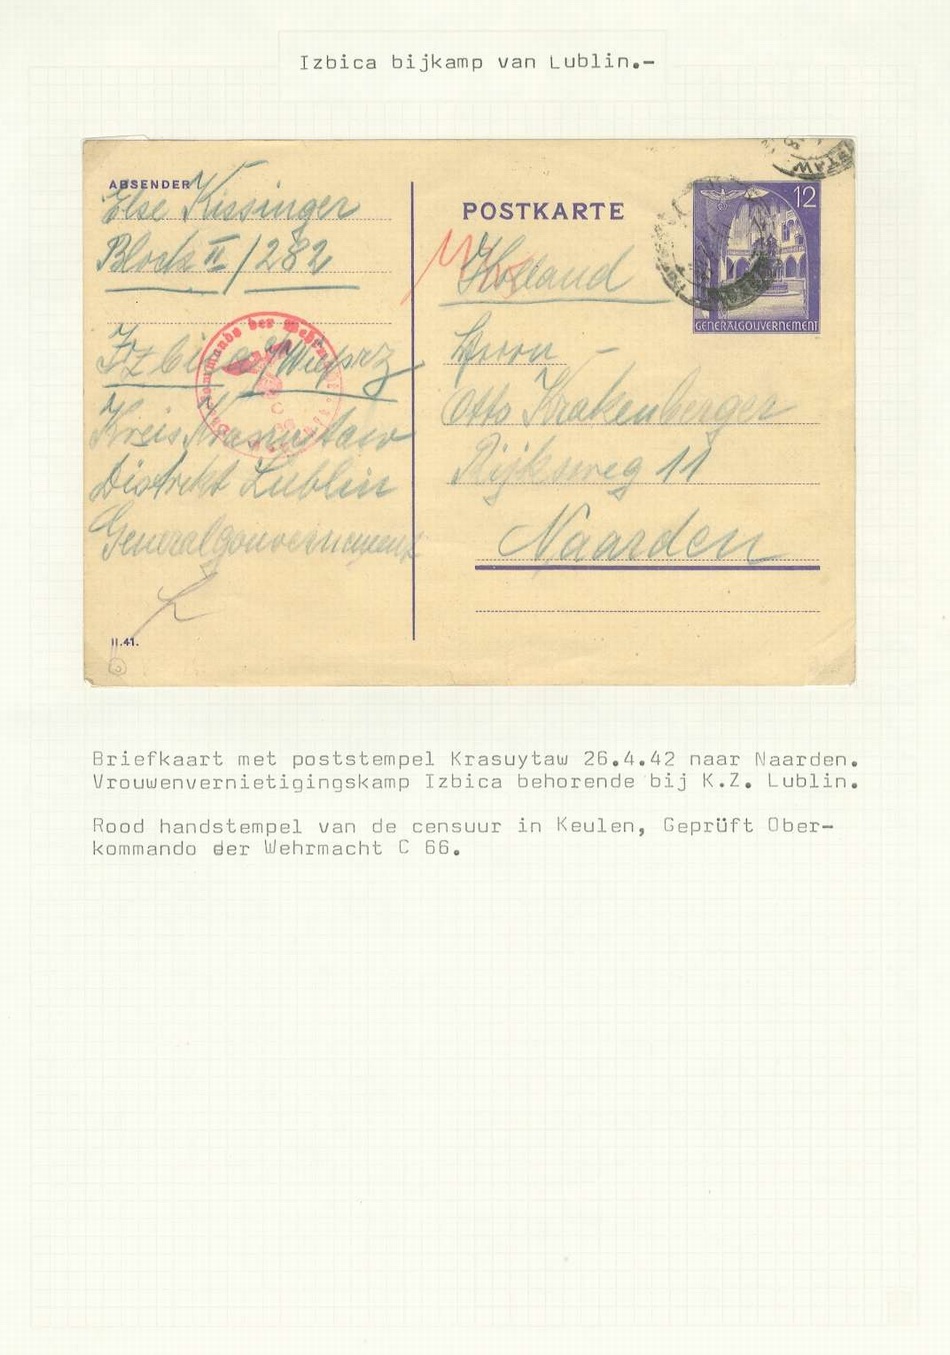 Izbica bijkamp van Lublin.-
ABSENDER
Else Kissinger
Block II/282
Izbica a/Wieprz
Kreis Krasnystaw
Distrikt Lublin
Generalgouvernement
II.41.
POSTKARTE
Holland
Herrn
Otto Krakenberger
Rijksweg 11
Naarden
12
GENERALGOUVERNEMENT
STAW
kommando der Wehrm
Briefkaart met poststempel Krasuytaw 26.4.42 naar Naarden.
Vrouwenvernietigingskamp Izbica behorende bij K.Z. Lublin.
Rood handstempel van de censuur in Keulen, Geprüft Ober-
kommando der Wehrmacht C 66.